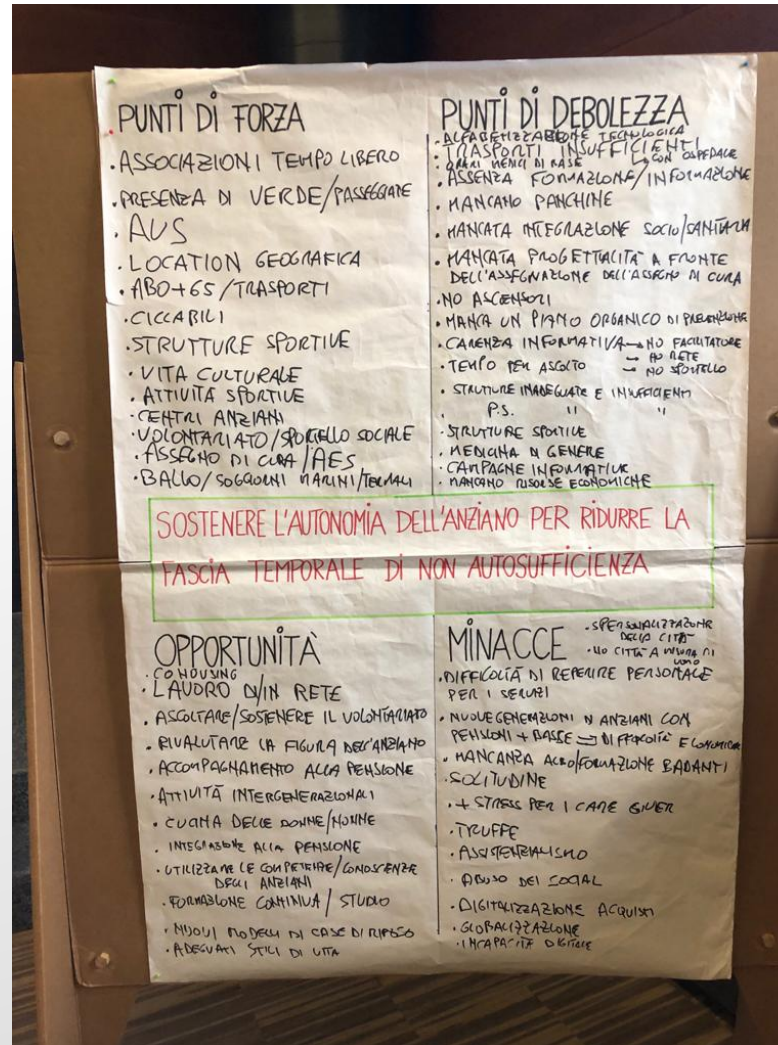 PUNTI DI FORZA
. ASSOCIAZIONI TEMPO LIBERO
. PRESENZA DI VERDE/PASSEGGIATE
. AUS
. LOCATION GEOGRAFICA
. ABO+65/TRASPORTI
. CICCABILI
. STRUTTURE SPORTIVE
. VITA CULTURALE
. ATTIVITÀ SPORTIVE
. CENTRI ANZIANI
. VOLONTARIATO/SPORTELLO SOCIALE
. ASSEGNO DI CURA/AES
. BALLO/SOGGIORNI MARINI/TERMALI
PUNTI DI DEBOLEZZA
. ALFABETIZZAZIONE TECNOLOGICA
. TRASPORTI INSUFFICIENTI
CON OSPEDALE
. ORARI MEDICI DI BASE
. ASSENZA FORMAZIONE/INFORMAZIONE
. MANCANO PANCHINE
. MANCATA INTEGRAZIONE SOCIO/SANITARIA
. MANCATA PROGETTUALITÀ A FRONTE
DELL'ASSEGNAZIONE DELL'ASSEGNO DI CURA
. NO ASCENSORI
. MANCA UN PIANO ORGANICO DI PREVENZIONE
. CARENZA INFORMATIVA → NO FACILITATORE
→ NO RETE
→ NO SPORTELLO
. TEMPO PER ASCOLTO
. STRUTTURE INADEGUATE E INSUFFICIENTI
. P.S. " "
. STRUTTURE SPORTIVE
. MEDICINA DI GENERE
. CAMPAGNE INFORMATIVE
. MANCANO RISORSE ECONOMICHE
SOSTENERE L'AUTONOMIA DELL'ANZIANO PER RIDURRE LA
FASCIA TEMPORALE DI NON AUTOSUFFICIENZA
OPPORTUNITÀ
. COHOUSING
. LAVORO DI/IN RETE
. ASCOLTARE/SOSTENERE IL VOLONTARIATO
. RIVALUTARE LA FIGURA DELL'ANZIANO
. ACCOMPAGNAMENTO ALLA PENSIONE
. ATTIVITÀ INTERGENERAZIONALI
. CUCINA DELLE DONNE/NONNE
. INTEGRAZIONE ALLA PENSIONE
. UTILIZZARE LE COMPETENZE/CONOSCENZE
DEGLI ANZIANI
. FORMAZIONE CONTINUA / STUDIO
. NUOVI MODELLI DI CASE DI RIPOSO
. ADEGUATI STILI DI VITA
MINACCE
. SPERSONALIZZAZIONE
DELLA CITTÀ
. NO CITTÀ A MISURA DI
UOMO
. DIFFICOLTÀ DI REPERIRE PERSONALE
PER I SERVIZI
. NUOVE GENERAZIONI DI ANZIANI CON
PENSIONI + BASSE → DIFFICOLTÀ ECONOMICA
. MANCANZA ALBO/FORMAZIONE BADANTI
. SOLITUDINE
. + STRESS PER I CARE GIVER
. TRUFFE
. ASSISTENZIALISMO
. ABUSO DEI SOCIAL
. DIGITALIZZAZIONE ACQUISTI
. GLOBALIZZAZIONE
. INCAPACITÀ DIGITALE